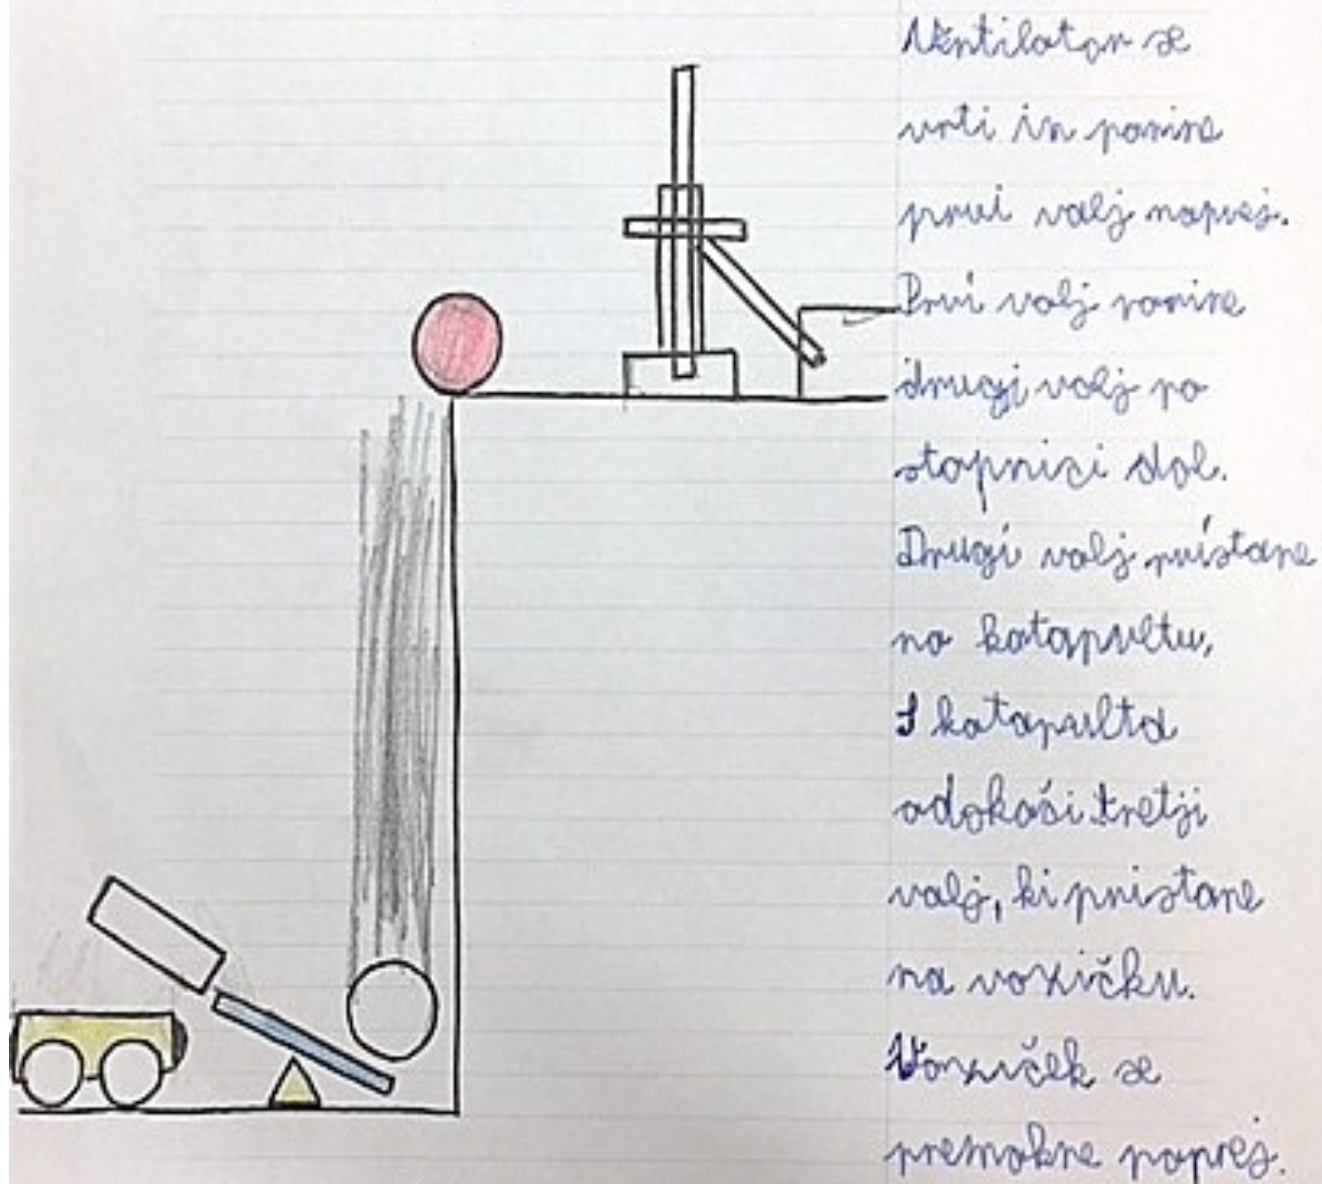 Ventilator se
vrti in porine
prvi valj naprej.
Prvi valj porine
drugi valj po
stopnici dol.
Drugi valj pristane
na katapultu,
S katapulta
odskoči tretji
valj, ki pristane
na vozičku.
Voziček se
premakne naprej.